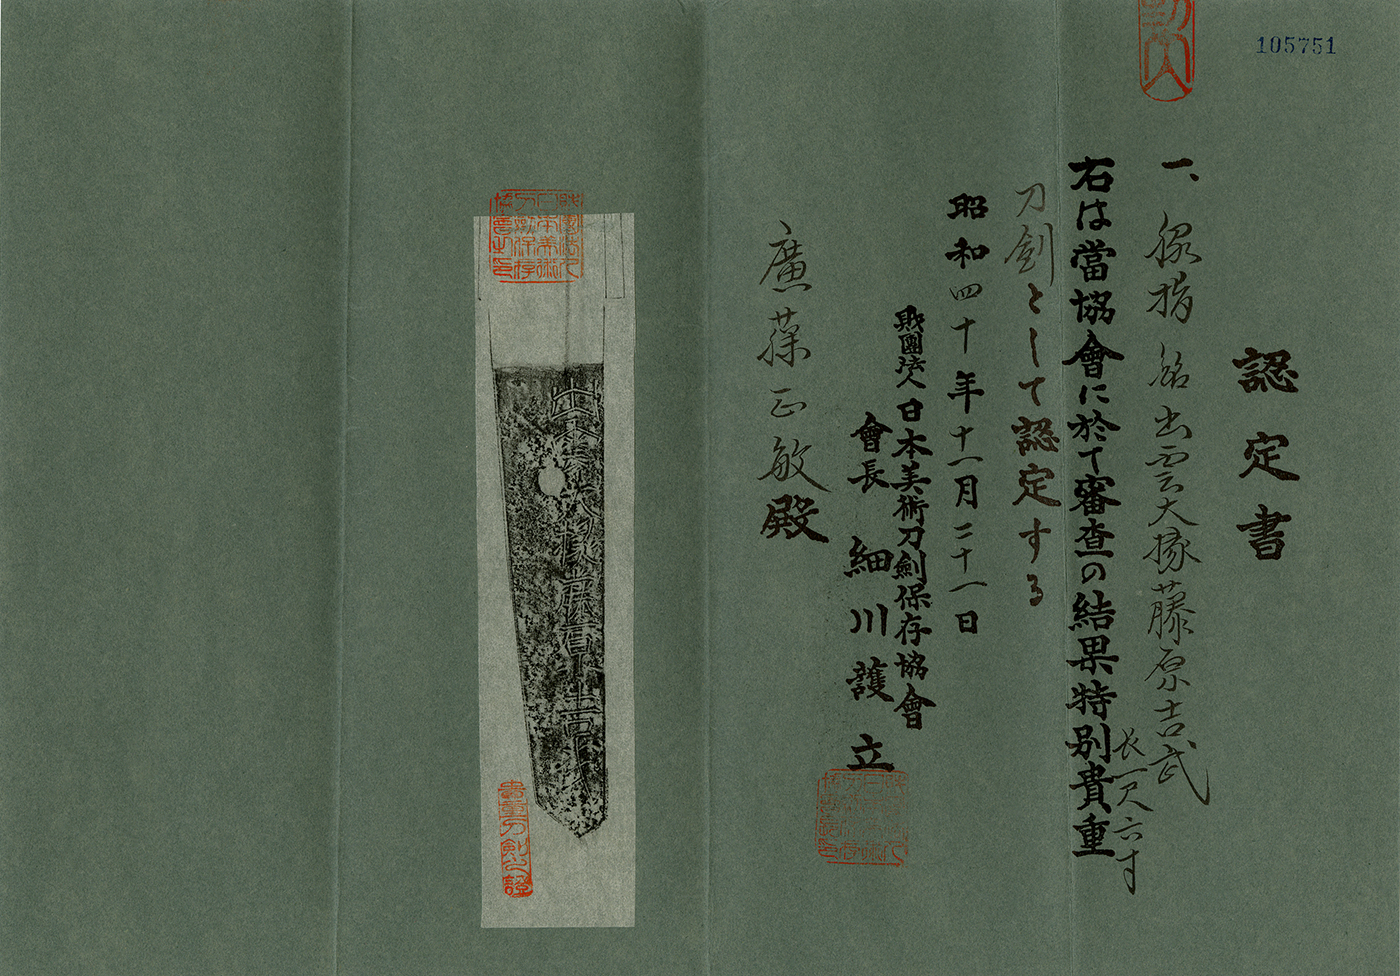 105751
認定書
一、脇指 銘出雲大掾藤原吉武
長一尺六寸
右は當協會に於て審査の結果特別貴重
刀劍として認定する
昭和四十年十一月二十一日
財團法人日本美術刀劍保存協會
會長 細川護立
正敏殿
出雲大掾藤原吉武
貴重刀劍之證